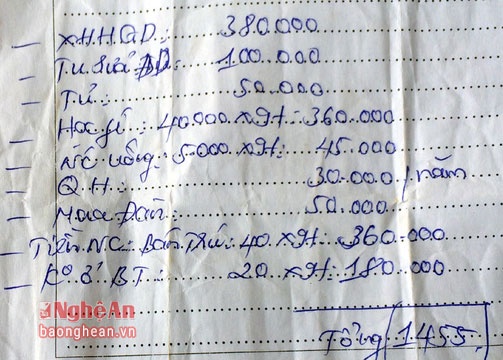 – XHHGD: 380.000
– T.u sửa BĐ: 100.000
– T.ủ: 50.000
– Học fí: 40.000 x 9t: 360.000
– NC uống: 5.000 x 9t: 45.000
– Q.H: 30.000 / năm
– Mua Đàn: 50.000
– Tiền N.C. Bán Trú: 40 x 9t: 360.000
– Ko ở B.T: 20 x 9t: 180.000
Tổng 1.455
NghệAn
baonghean.vn